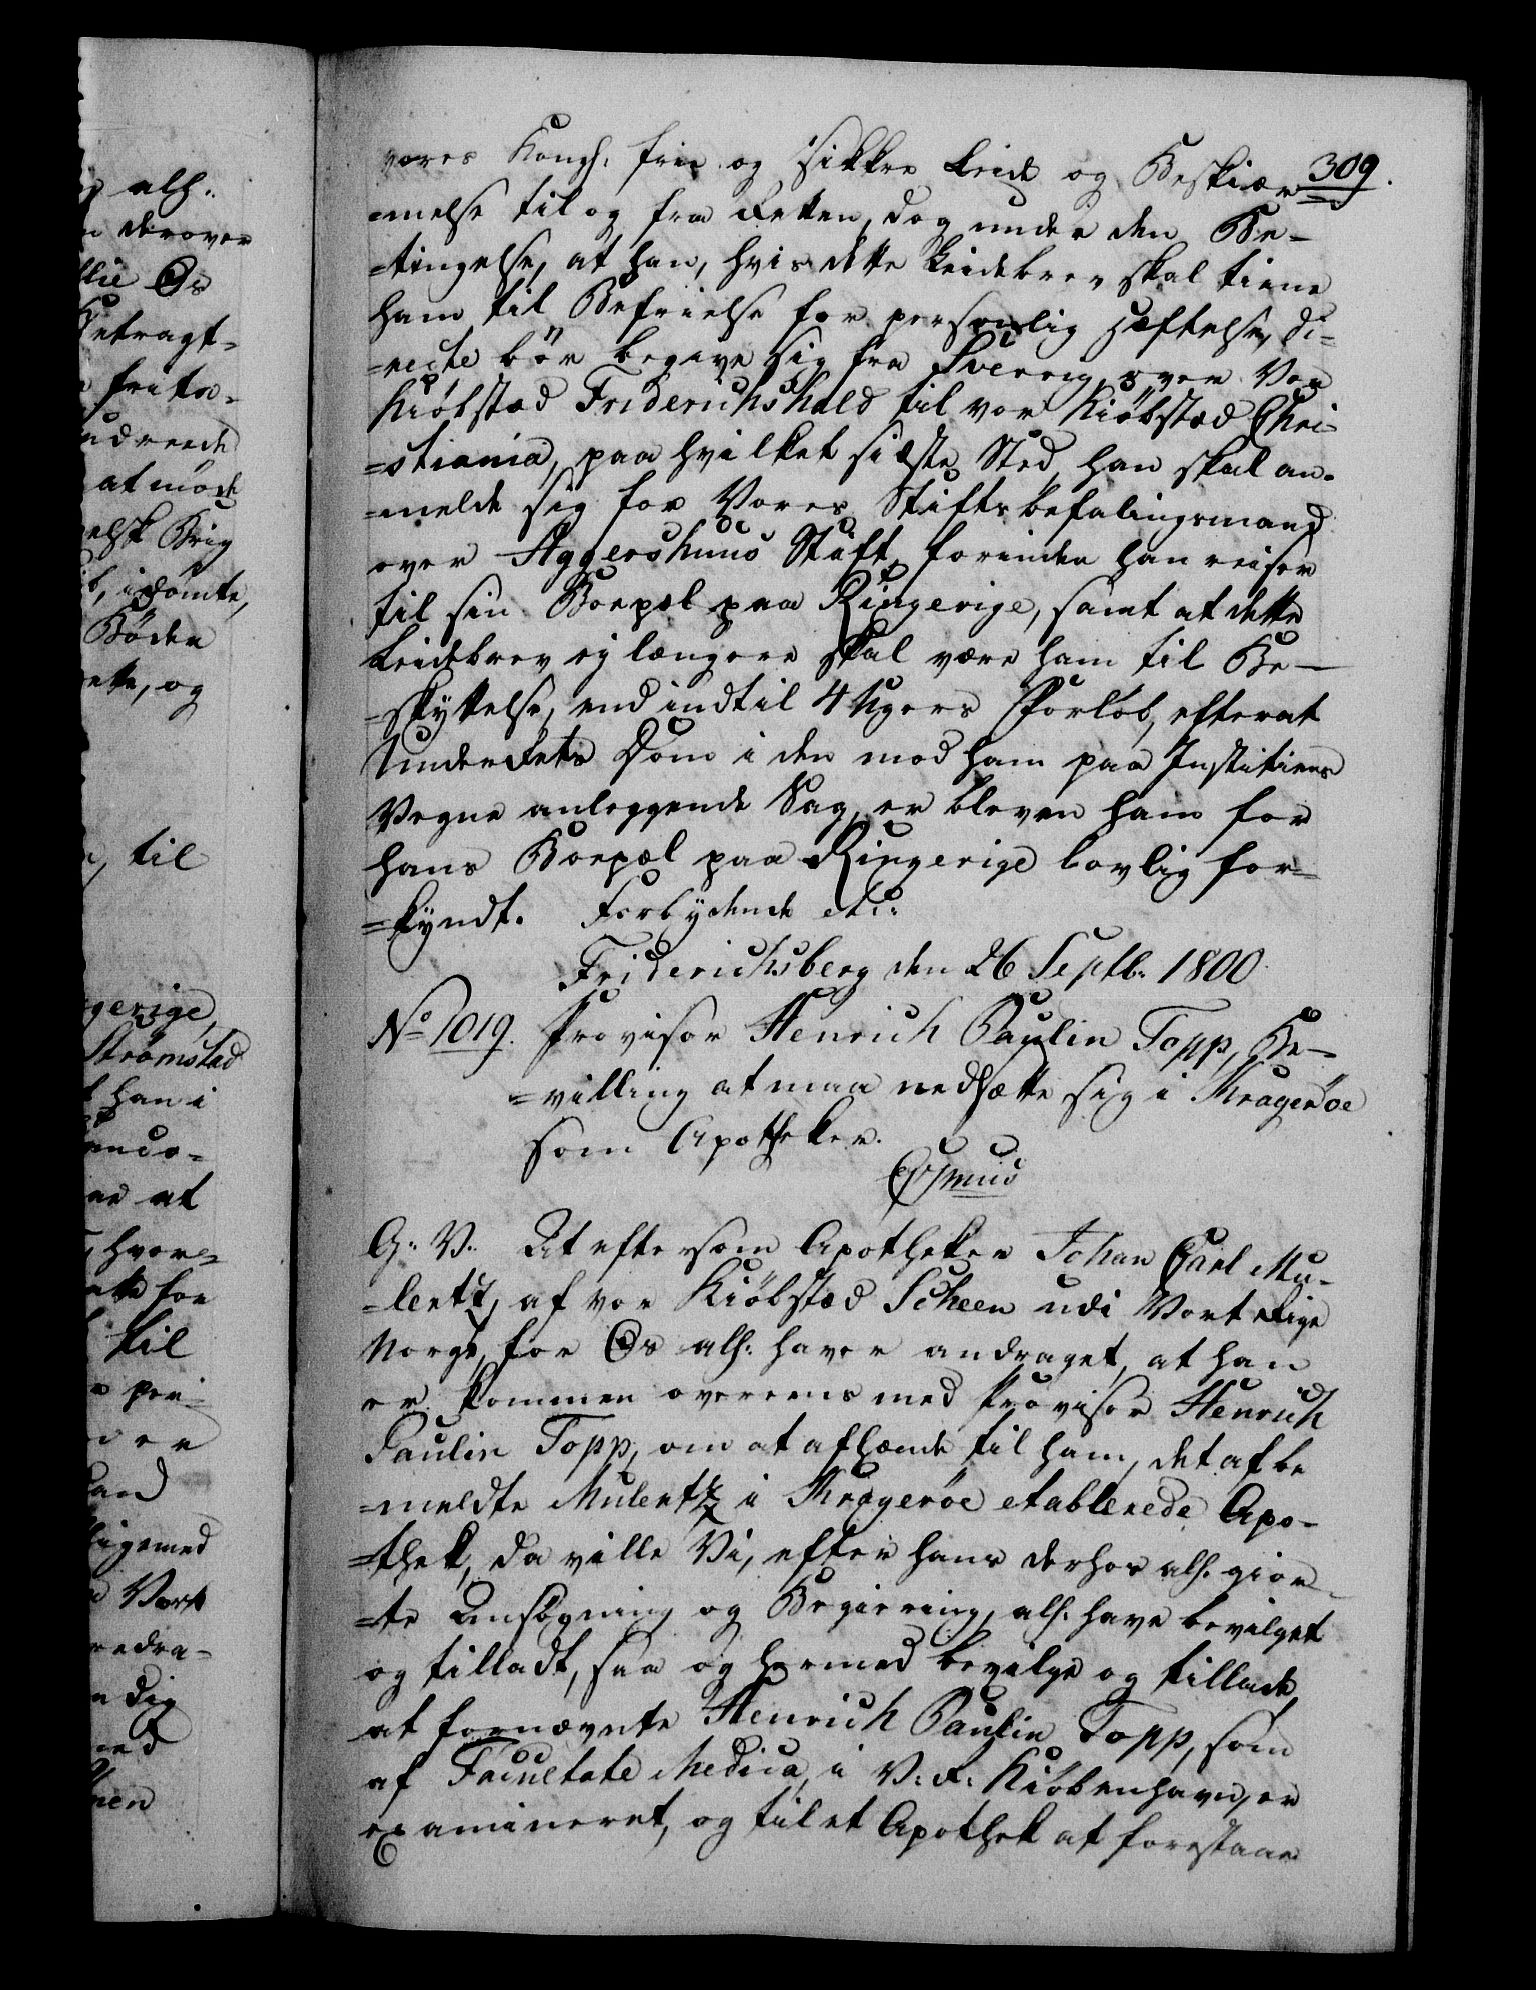 309.
vores Kongl: frie og sikkre Leide og Beskiær
=melse til og fra Retten, dog under den Be-
=tingelse, at han, hvis dette Leidebrev skal tiene
ham til Befrielse for personlig Hæftelse, di-
=recte bør begive sig fra Sverrig over Vor
Kiøbstæd Friderichshald til vor Kiøbstæd Chri-
=stiania, paa hvilket sidste Sted, han skal an-
=melde sig for Vores Stiftsbefalingsmand
over Aggershuus Stift, forinden han reiser
til sin Boepæl paa Ringerige, samt at dette
Leidebrev ej længere skal være ham til Be-
=skyttelse, end indtil 4 Ugers Forløb, efterat
Underrets Dom i den mod ham paa Justitiens
Vegne anleggende Sag, er bleven ham for
hans Boepæl paa Ringerige lovlig for-
=kyndt. Forbydende etc:
Friderichsberg den 26 Septb: 1800.
No 1019. Provisor Henrich Paulin Topp, Be-
=villing at maa nedsætte sig i Kragerøe
som Apotheker.
G: V: At eftersom Apotheker Johan Carl Mu-
=lertz, af vor Kiøbstæd Scheen udi Vort Rige
Norge, for Os all: haver andraget, at han
er kommen overeens med Provisor Henrich
Paulin Topp, om at afstænde til ham, det af be
=meldte Mulertz i Kragerøe etablerede Apo-
=thek, da ville Vi, efter hans derhos all: gior-
=te Ansøgning og Begiering, all: have bevilget
og tilladt, saa og hermed bevilge og tillade,
at fornævnte Henrich Paulin Topp, som
af Facultate Medica, i V: R: Kiøbenhavn, er
examineret, og til et Apothek at forestaae
all:
derover
Os
betragt-
frita-
at møde
elsk Brig
idømte,
Bøder
ette, og
til
gerige,
Strømstad
han i
at
hvor=
for
til
ligemed
Vort
dig